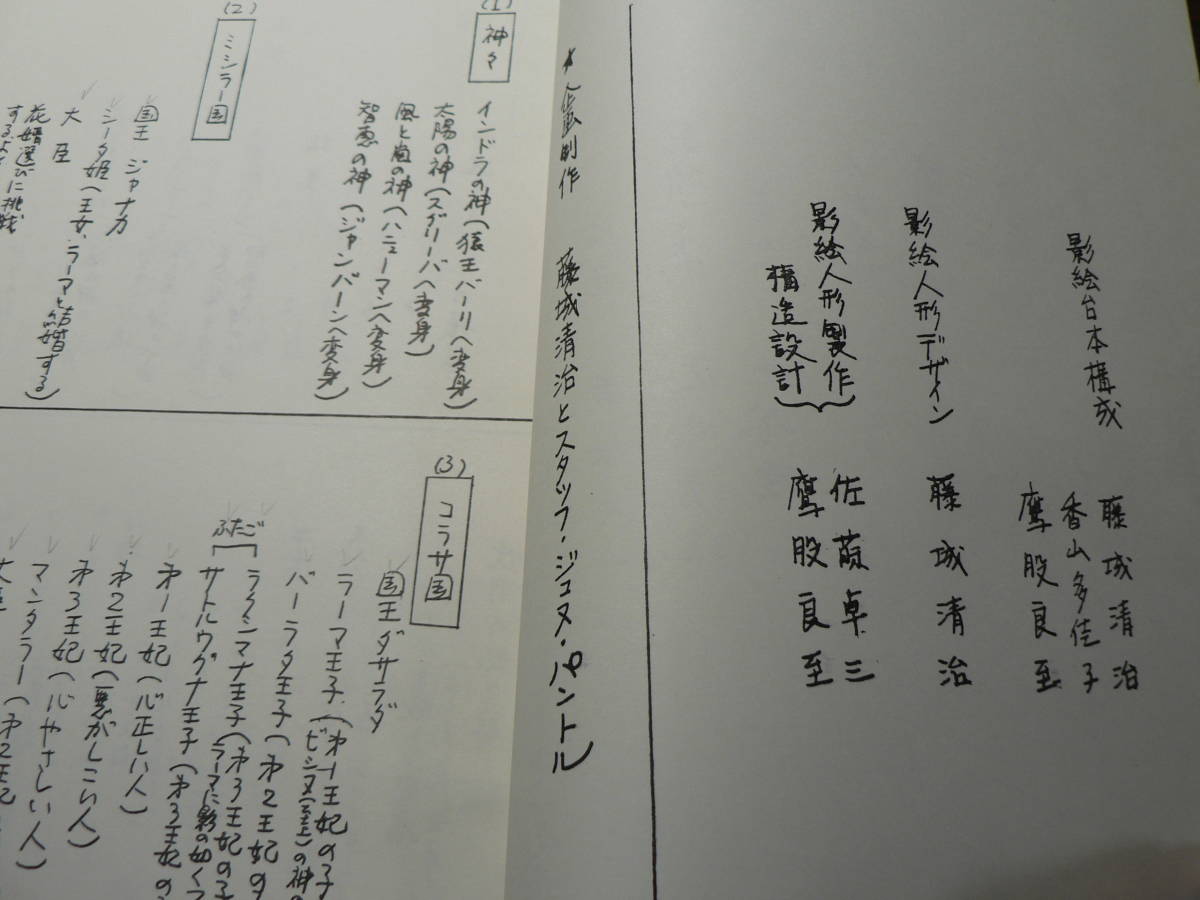 影絵台本構成
藤城清治
香山多佳子
鷹股良至
影絵人形デザイン
藤城清治
影絵人形製作
構造設計
佐藤卓三
鷹股良至
藤城清治とスタッフ・ジュヌ・パントル
(1)
神々
インドラの神(猿王バーリへ変身)
太陽の神(スグリーバへ変身)
風と嵐の神(ハニューマンへ変身)
智恵の神(ジャンバーンへ変身)
(2)
ミシラー国
国王 ジャナカ
シータ姫(王女・ラーマと結婚する)
大臣
花婿選びに挑戦
するよ
(3)
コラサ国
国王ダサラダ
ラーマ王子(オ1王妃の子
ビシヌ の神の
バーラタ王子(オ2王妃の
ふたご
ラクシマナ王子(オ3王妃の子
ラーマに影の如く
サトルウグナ王子(オ3王妃の
オ1王妃(心正しい人)
オ2王妃(悪がしこい人)
オ3王妃(心やさしい人)
マンタラー(オ2王妃